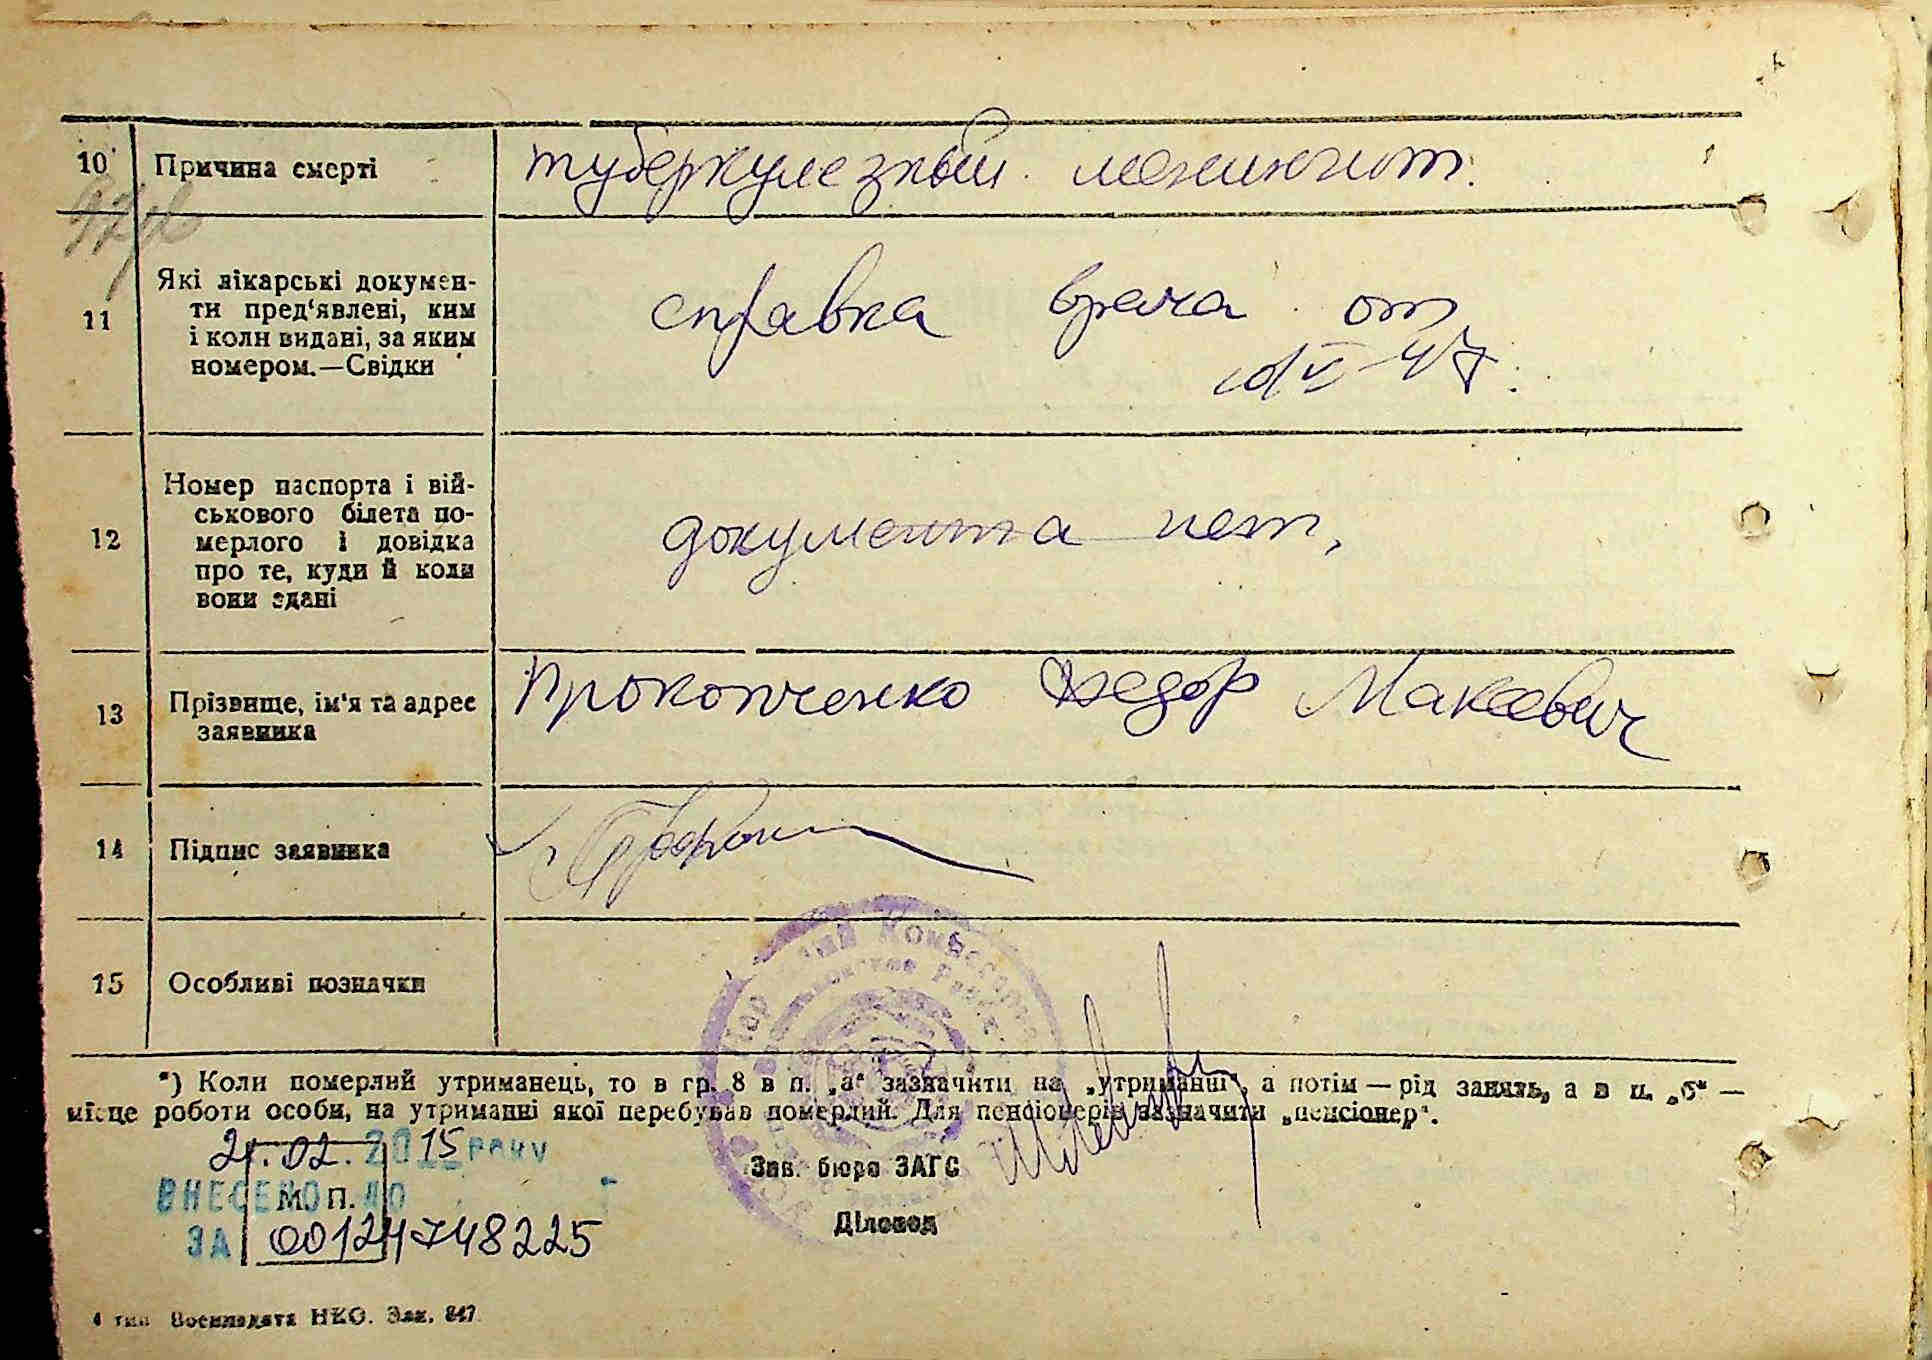 10 Причина смерті туберкулезный менингит.
11 Які лікарські докумен-
ти пред'явлені, ким
і коли видані, за яким
номером.—Свідки
справка врача от
VI-47
12 Номер паспорта і вій-
ськового білета по-
мерлого і довідка
про те, куди й коли
вони здані
документа нет,
13 Прізвище, ім'я та адрес
заявника
Прокопченко Федор Макеевич
14 Підпис заявника
15 Особливі позначки
*) Коли померлий утриманець, то в гр. 8 в п. „а“ зазначити на „утриманні“, а потім — рід занять, а в п. „б“ —
місце роботи особи, на утриманні якої перебував померлий. Для пенсіонерів зазначити „пенсіонер“.
21.02.2015 року
ВНЕСЕНО ДО
М. П.
ЗА 00124748225
Зав. бюро ЗАГС
Діловод
4 тип Воениздата НКО. Зак. 847.